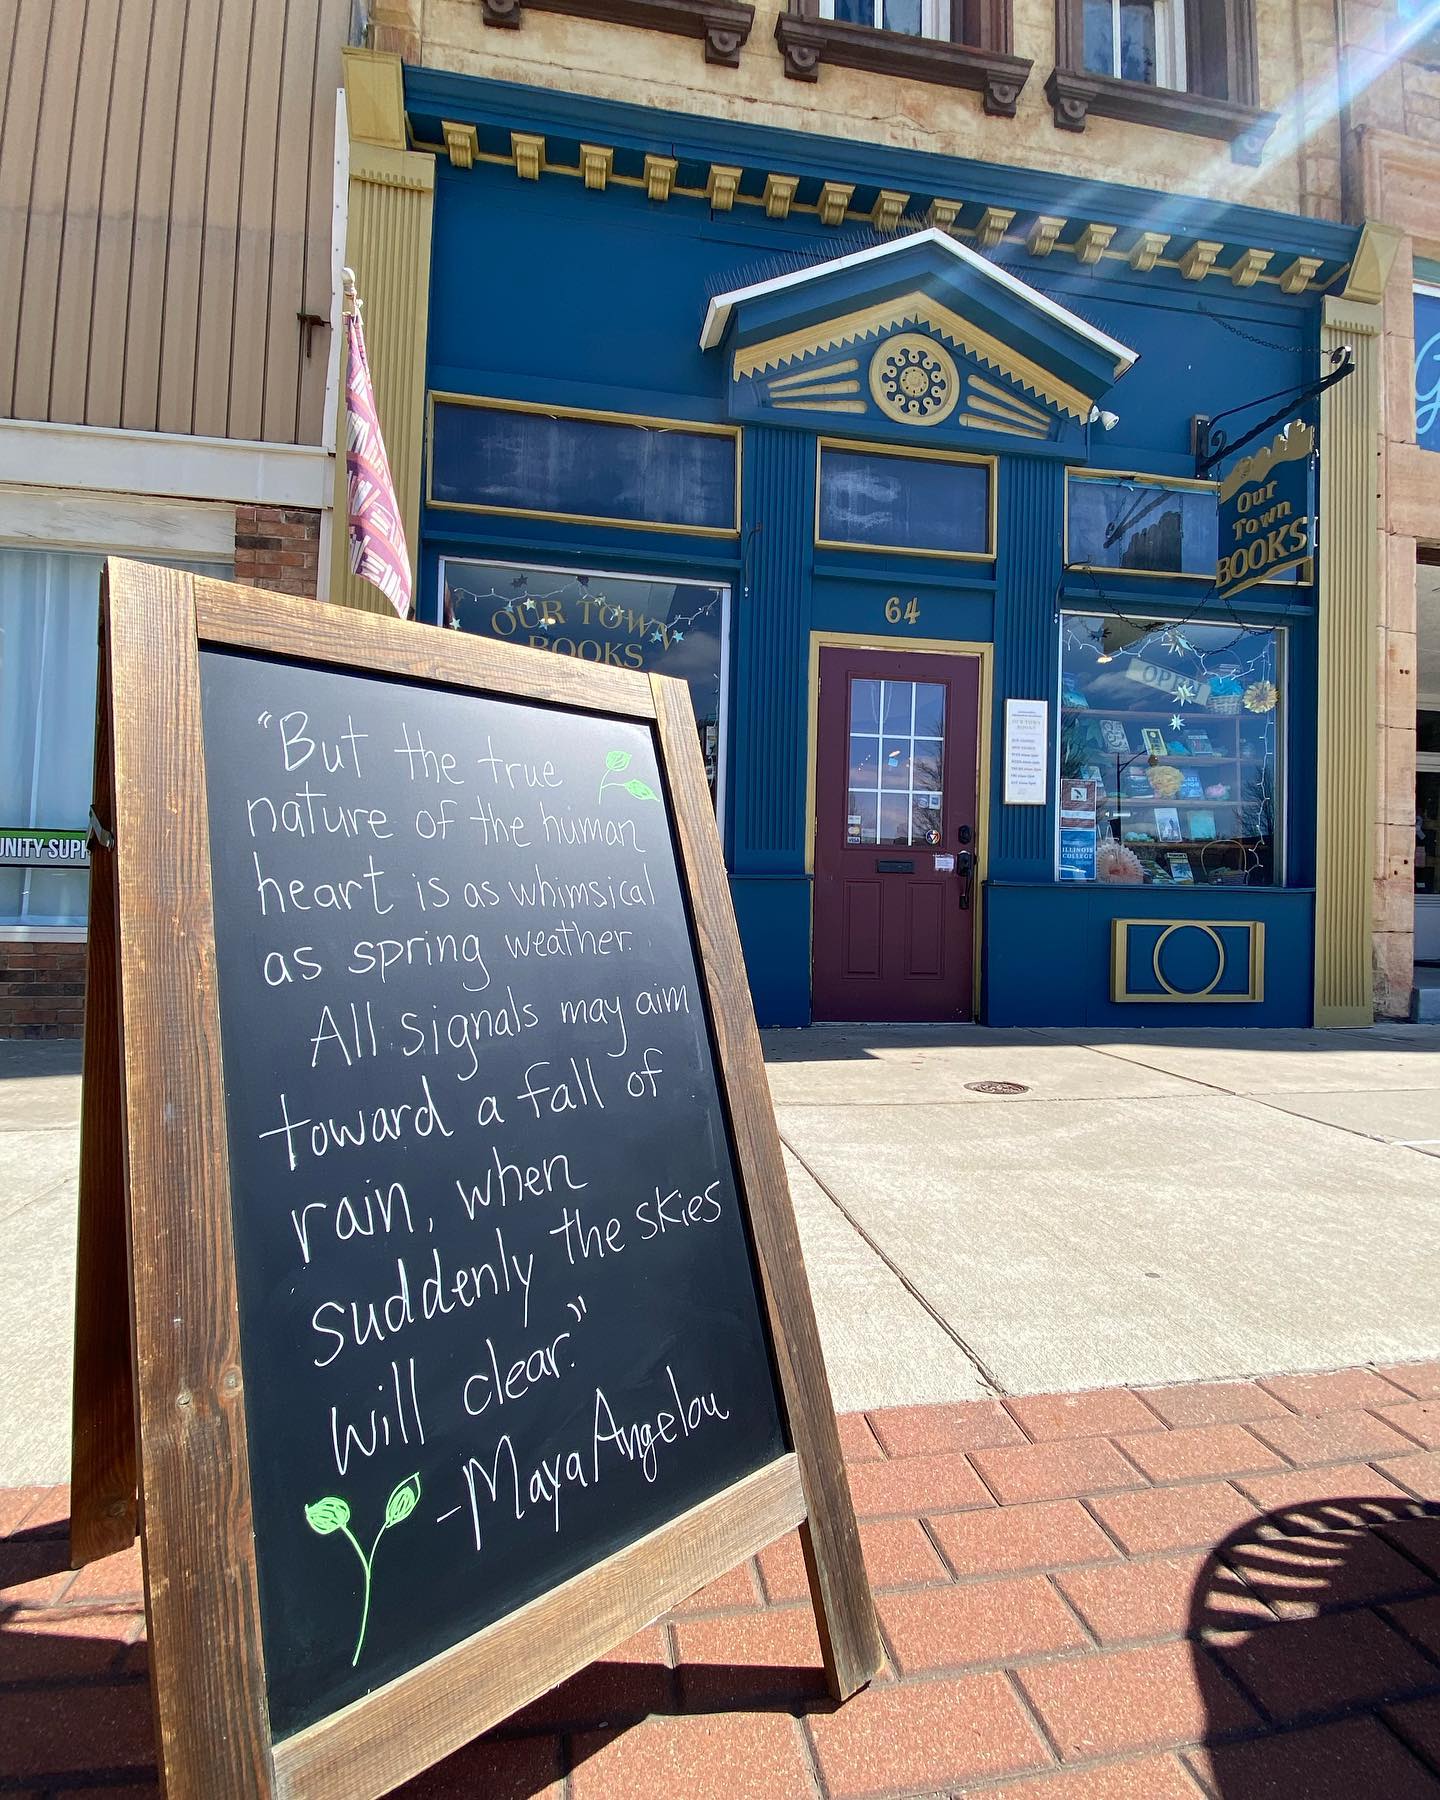 “But the true
nature of the human
heart is as whimsical
as spring weather.
All signals may aim
toward a fall of
rain, when
suddenly the skies
will clear.”
-Maya Angelou
OUR TOWN
BOOKS
64
Our
Town
BOOKS
OPEN
OUR TOWN
BOOKS
VISA
ILLINOIS
COLLEGE
UNITY SUPP